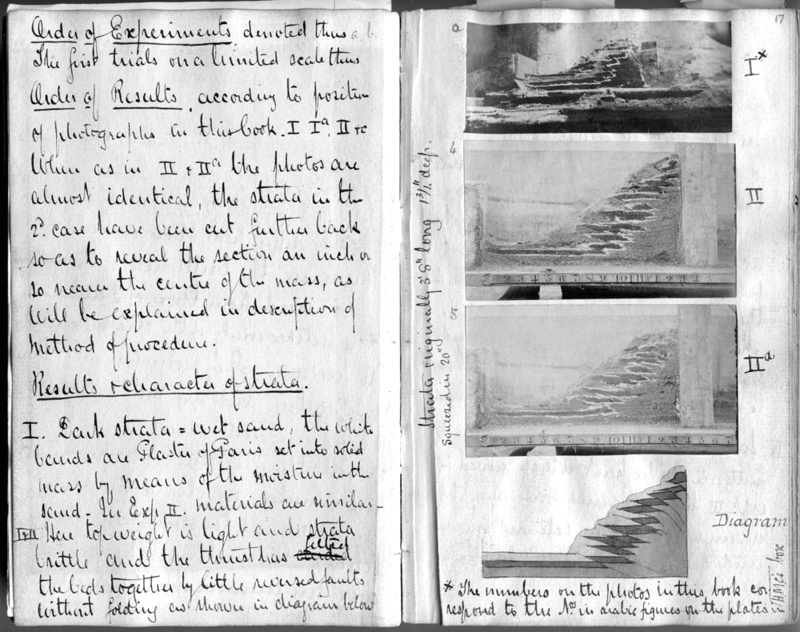 Order of Experiments denoted thus a b.
The first trials on a limited scale thus
Order of Results, according to position
of photographs in this book. I Iª. II &c
When as in II & IIª the photos are
almost identical, the strata in the
2ᵈ. case have been cut further back
so as to reveal the section an inch or
so nearer the centre of the mass, as
will be explained in description of
method of procedure.
Results & character of strata.
I. Dark strata = wet sand, the white
bands are Plaster of Paris set into solid
mass by means of the moisture in the
sand. In Exp II. materials are similar
I & II Here top weight is light and strata
brittle and the thrust has
the beds together by little reversed faults
without folding as shown in diagram below
17
a
I*
II
5
IIª
Strata originally 3' 8" long 1 3/4" deep.
Squeezed in 20"
Diagram
* The numbers on the photos in this book cor-
respond to the Nos in arabic figures on the plates